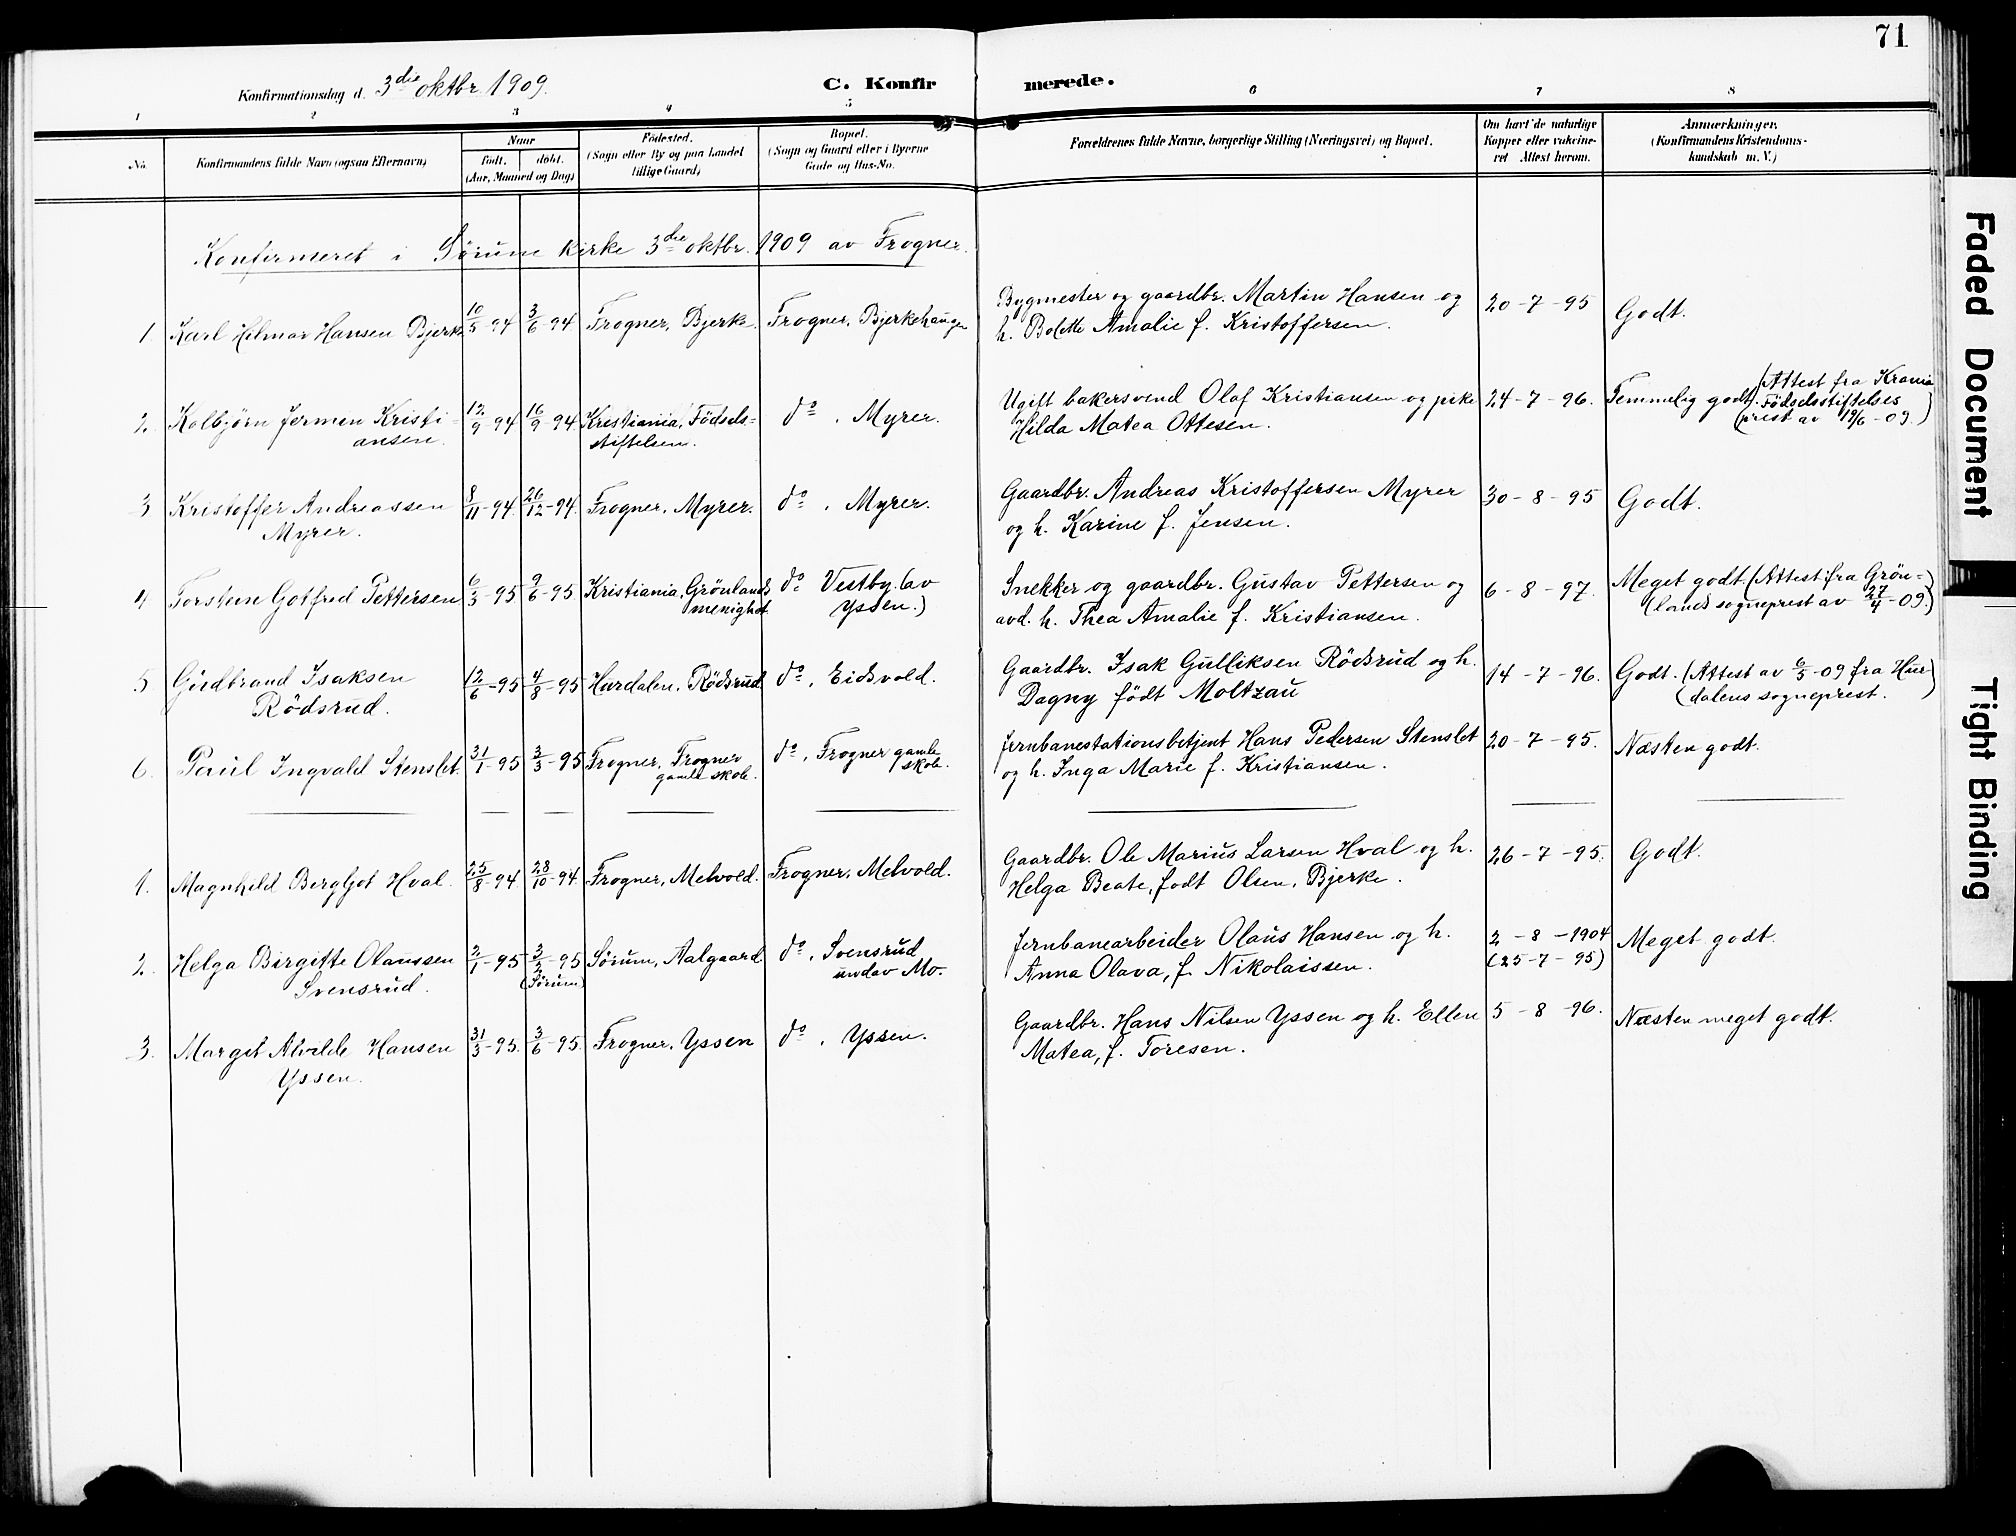 71
Konfirmationsdag d. 3die oktbr. 1909.
C. Konfirmerede.
1 2 3 4 5 6 7 8
No.
Konfirmandens fulde Navn (ogsaa Efternavn)
Naar
født. døbt.
(Aar, Maaned og Dag)
Fødested.
(Sogn eller By og paa Landet
tillige Gaard)
Bopæl.
(Sogn og Gaard eller i Byerne
Gade og Hus-No.
Forældrenes fulde Navne, borgerlige Stilling (Næringsvei) og Bopæl.
Om havt de naturlige
Kopper eller vakcine-
ret Attest herom.
Anmærkninger.
(Konfirmandens Kristendoms-
kundskab m. V.)
Konfirmeret i Sørum kirke 3die oktbr. 1909 av Frogner.
1 Karl Hilmar Hansen Bjerke 10/5-94 3/6-94 Frogner, Bjerke. Frogner, Bjerkehaugen
Bygmester og gaardbr. Martin Hansen og
h. Bolette Amalie f. Kristoffersen.
20-7-95 Godt.
2. Kolbjørn Jermen Kristi-
ansen.
12/9-94 16/9-94 Kristiania, Fødsels-
stiftelsen.
do. Myrer.
Ugift bakersvend Olaf Kristiansen og pike
Hilda Matea Ottesen.
24-7-96. Temmelig godt. (Attest fra Krania
Fødselsstiftelses
prest av 19/6-09.)
3 Kristoffer Andreassen
Myrer.
8/11-94. 26/12-94. Frogner, Myrer. do. Myrer.
Gaardbr. Andreas Kristoffersen Myrer
og h. Karine f. Jensen.
30-8-95 Godt.
4 Torstein Gotfred Pettersen 6/3-95 9/6-95 Kristiania, Grønlands
menighet
do. Vestby (av
Yssen.)
Snekker og gaardbr. Gustav Pettersen og
avd. h. Thea Amalie f. Kristiansen.
6-8-97. Meget godt (Attest fra Grøn-
lands sogneprest av 27/4-09.)
5 Gudbrand Isaksen
Rødsrud.
12/6-95 4/8-95 Hurdalen, Rødsrud do. Eidsvold.
Gaardbr. Isak Gulliksen Rødsrud og h.
Dagny født Moltzau
14-7-96. Godt. (Attest av 6/5-09 fra Hur-
dalens sogneprest.)
6. Paul Ingvald Stenslet. 31/1-95 3/3-95 Frogner, Frogner
gamle skole.
do. Frogner gamle
skole.
Jernbanestationsbetjent Hans Pedersen Stenslet
og h. Inga Marie f. Kristiansen.
20-7-95. Næsten godt.
1. Magnhild Bergljot Hval. 25/8-94 28/10-94. Frogner, Melvold. Frogner, Melvold.
Gaardbr. Ole Marius Larsen Hval og h.
Helga Beate, født Olsen, Bjerke.
26-7-95. Godt.
2. Helga Birgitte Olaussen
Svensrud.
2/1-95 3/2-95
(Sørum)
Sørum, Aalgaard do. Svensrud
undav Mo.
Jernbanearbeider Olaus Hansen og h.
Anna Olava, f. Nikolaissen.
2-8-1904
(25-7-95)
Meget godt.
3. Margit Alvilde Hansen
Yssen.
31/3-95. 3/6-95. Frogner, Yssen do. Yssen.
Gaardbr. Hans Nilsen Yssen og h. Ellen
Matea, f. Toresen.
5-8-96. Næsten meget godt.
Faded Document
Tight Binding